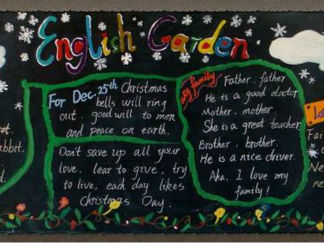 English Garden
For Dec. 25th Christmas
bells will ring
out, good will to men
and peace on earth.
Don't save up all your
love, lear to give, try
to live, each day likes
Christmas Day.
My family
Father, father
He is a good doctor
Mother, mother.
She is a great teacher
Brother, brother.
He is a nice driver.
Aha, I love my
family!